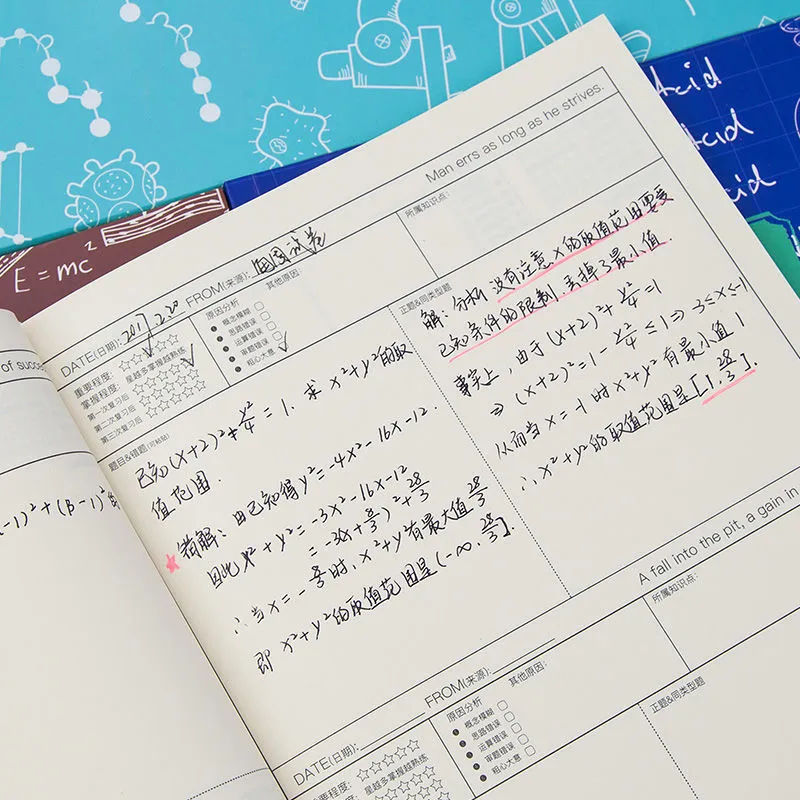 Acid
Acid
cid
E=mc²
of succe
-1)²+(β-1)²
Man errs as long as he strives.
DATE(日期): 2017.2.20 FROM(来源): 国图试卷
所属知识点:
重要程度:
掌握程度: 星越多掌握越熟练
第一次复习后
第二次复习后
第三次复习后
原因分析
概念模糊
思路错误
运算错误
审题错误
粗心大意
其他原因:
题目&错题(可粘贴)
已知(x+2)²+y²/4=1. 求 x²+y²的取
值范围.
错解: 由已知得y²=-4x²-16x-12.
因此 x²+y²=-3x²-16x-12
=-3(x+8/3)²+28/3
∴当x=-8/3时, x²+y²有最大值28/3
即 x²+y²的取值范围是(-∞,28/3].
正题&同类型题
解: 分析 没有注意x的取值范围要受
已知条件的限制,丢掉了最小值.
事实上, 由于(x+2)²+y²/4=1
⇒(x+2)²=1-y²/4≤1⇒-3≤x≤-1
从而当x=-1时x²+y²有最小值1
∴x²+y²的取值范围是[1,28/3].
A fall into the pit, a gain in
DATE(日期): FROM(来源):
所属知识点:
重要程度:
掌握程度: 星越多掌握越熟练
第一次复习后
原因分析
概念模糊
思路错误
运算错误
审题错误
粗心大意
其他原因:
正题&同类型题